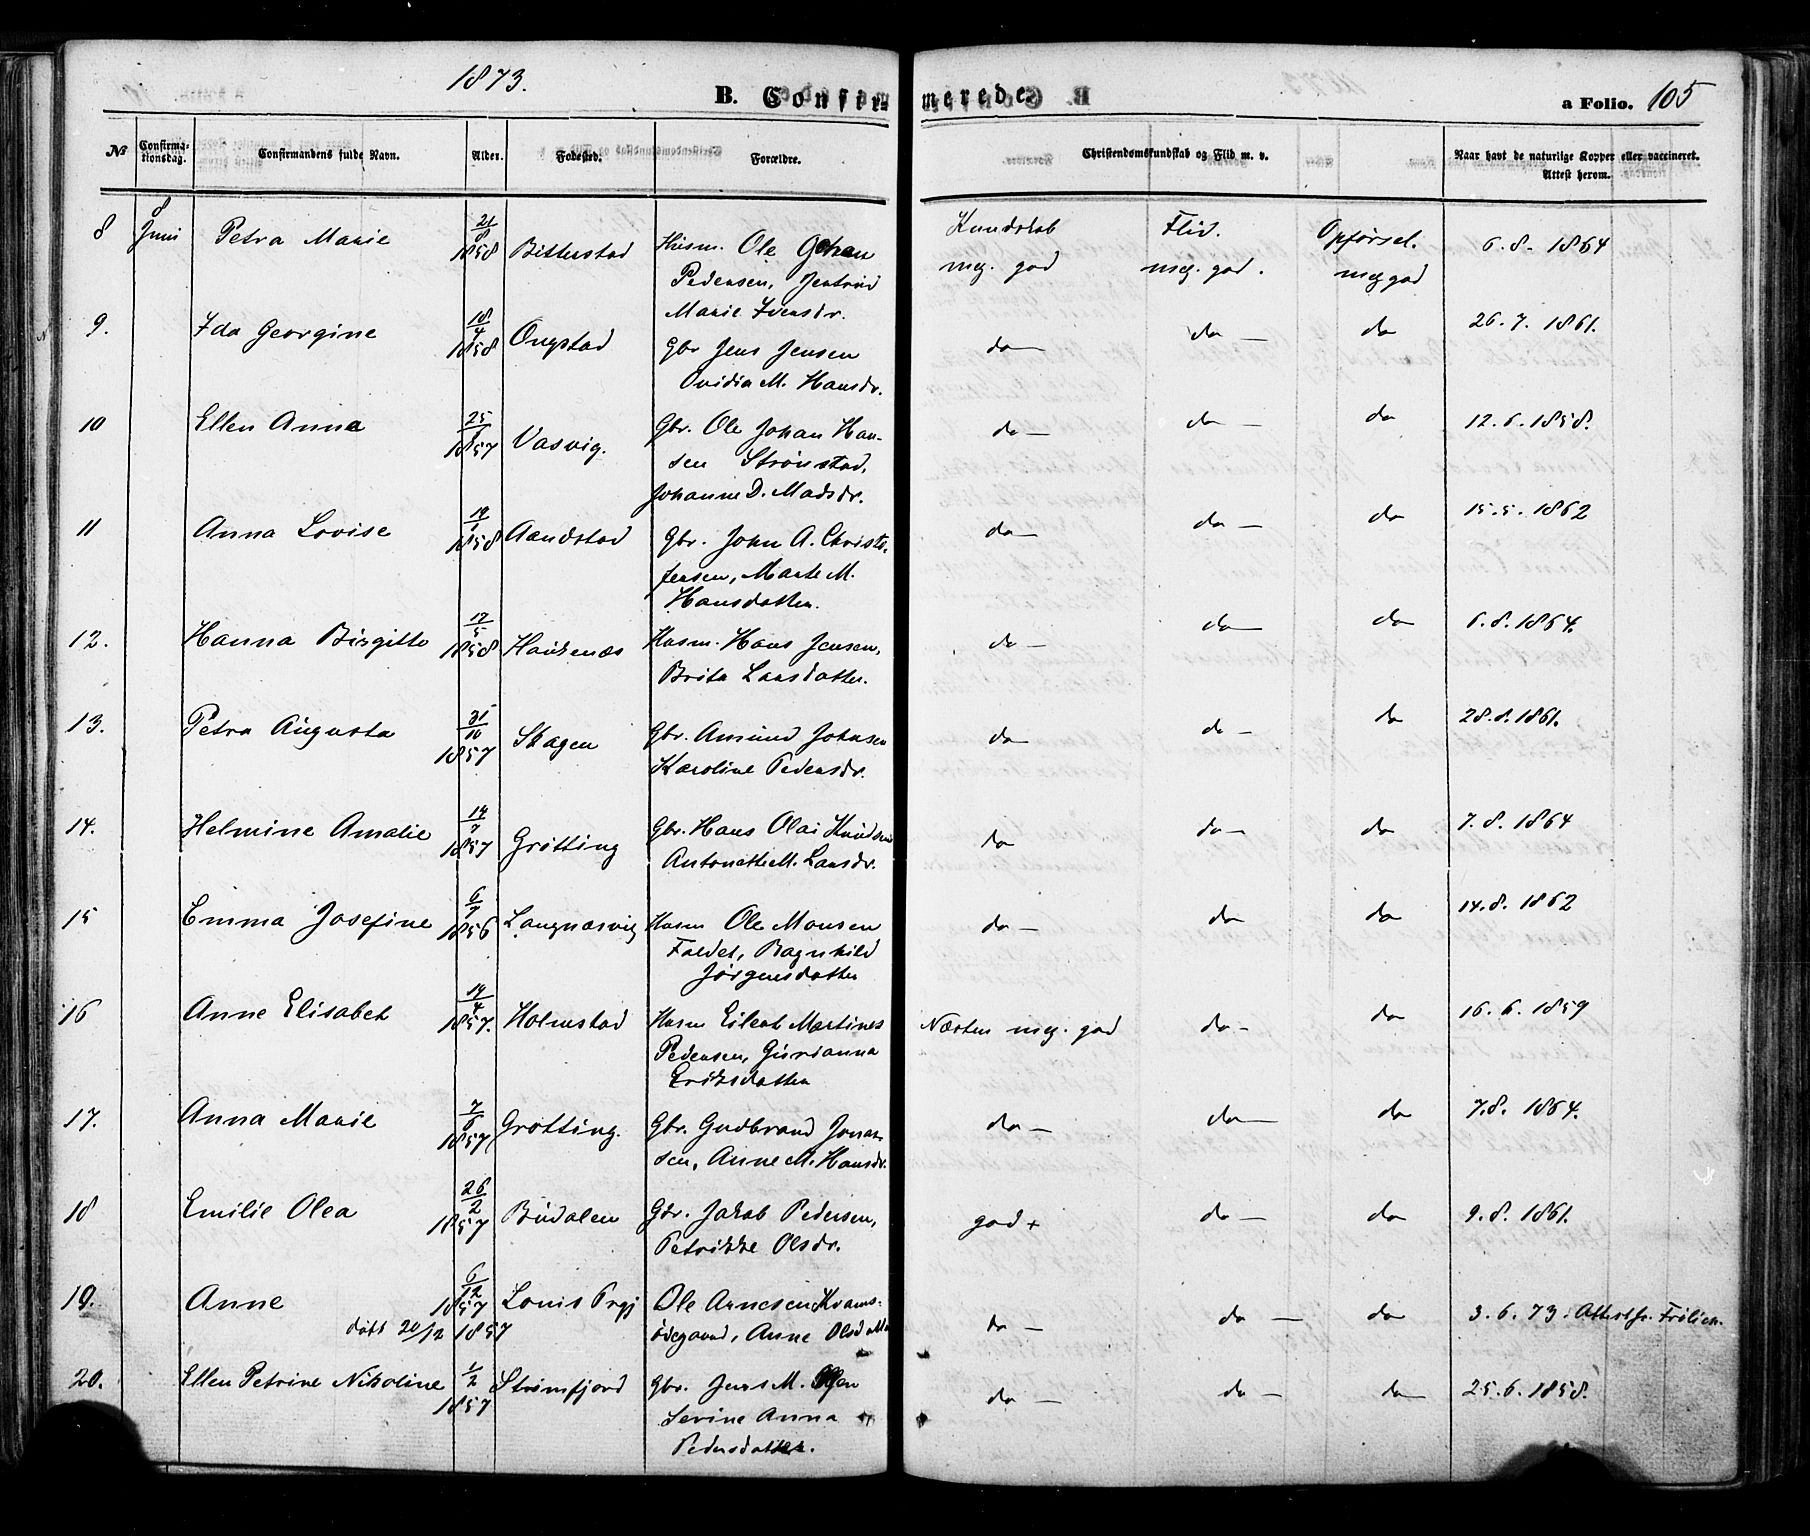 1873.
B. Confirmerede
a Folio. 105
№ Confirmationsdag. Confirmandens fulde Navn. Alder. Fødested. Forældre. Christendomskundskab og Flid m. v. Naar havt de naturlige Kopper eller vaccineret. Attest herom.
8 8 Juni Petra Marie 21/8 1858 Bitterstad Husm. Ole Johan Kundskab Flid. Opførsel. 6.8. 1864
Pedersen, Jertrud meg. god meg. god. meg god
Marie Iversdr.
9. Ida Georgine 18/4 1858 Ongstad Gbr Jens Jensen do do do 26.7. 1861.
Ovidia M. Hansdr.
10 Ellen Anna 25/ 1857 Vasvig. Gbr. Ole Johan Han- do do do 12.6.1858.
sen Strønstad,
Johanne D. Madsdr.
11 Anna Lovise 19/1 1858 Aandstad Gbr. John A. Christ- do do do 15.5. 1862
fensen, Marte M.
Hansdatter.
12. Hanna Birgitte 17/5 1858 Haukenæs Husm. Hans Jensen, do do do 6.8.1864.
Brita Larsdatter.
13. Petra Augusta 31/10 1857 Skagen Gbr. Amund Johnsen do do do 28.8.1861.
Karoline Pedersdr.
14. Helmine Amalie 14/7 1857 Grøtting Gbr. Hans Olai Knudsen do do do 7.8. 1864
Antonette M. Larsdr.
15 Emma Josefine 6/7 1856 Langnæsvig Husm Ole Monsen do do do 14.8. 1862
Faldet, Ragnhild
Jørgensdatter
16 Anne Elisabet 14/4 1857. Holmstad Husm Eilert Martines Næsten meg. god do do 16.6. 1859
Pedersen, Gurianna
Eriksdatter
17. Anna Marie 7/8 1857 Grøtting. Gbr. Gudbrand Jonas- do do do 7.8. 1864.
sen, Anne M. Hansdr.
18 Emilie Olea 26/2 1857 Budalen Gbr. Jakob Pedersen, god + do do 9.8. 1861.
Petrikke Olsdr.
19. Anne 6/12 1857 Louis Prgj Ole Arnesen Kvams- do do do 3.6.73 Attest fr. Frölich.
døbt 20/12 1857 ødegaard, Anne Olsdatter
20. Ellen Petrine Nikoline 1/2 1857 Strømfjord Gbr. Jens M. Olsen do do do 25.6.1858.
Serine Anna
Pedersdatter.